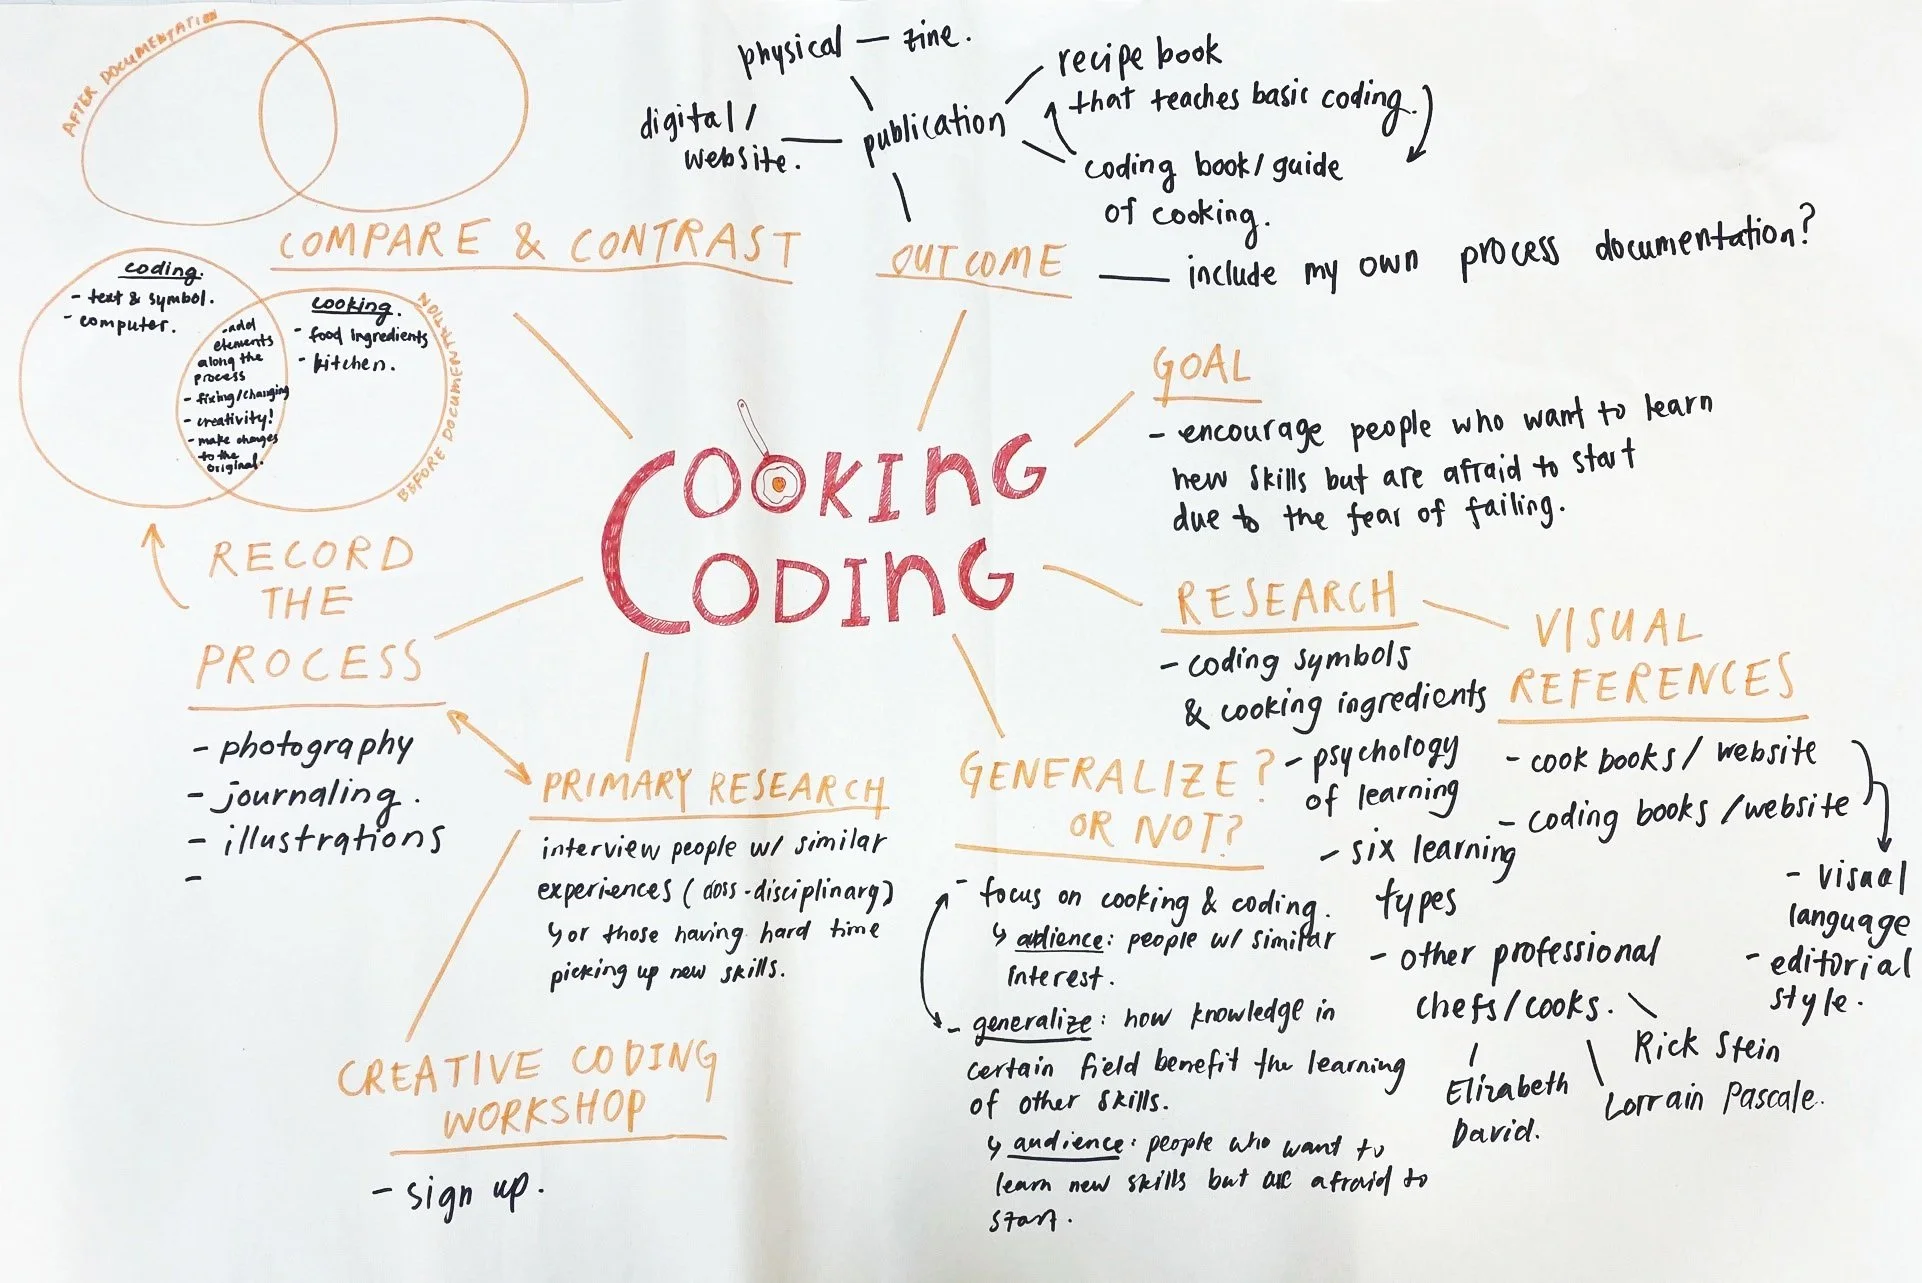 AFTER DOCUMENTATION
physical — zine.
digital/
website.
publication
recipe book
that teaches basic coding.
coding book/guide
of cooking.
COMPARE & CONTRAST
OUTCOME
include my own process documentation?
coding.
- text & symbol.
- computer.
- add
elements
along the
process
- fixing/changing
- creativity!
- make changes
to the
original.
cooking.
- food ingredients
- kitchen.
BEFORE DOCUMENTATION
GOAL
- encourage people who want to learn
new skills but are afraid to start
due to the fear of failing.
COOKING
CODING
RECORD
THE
PROCESS
- photography
- journaling.
- illustrations
-
RESEARCH
- coding symbols
& cooking ingredients
- psychology
of learning
- six learning
types
- other professional
chefs/cooks.
Elizabeth
David.
Lorrain Pascale.
Rick Stein
VISUAL
REFERENCES
- cook books/website
- coding books/website
- visual
language
- editorial
style.
PRIMARY RESEARCH
interview people w/ similar
experiences (cross-disciplinary)
↳ or those having hard time
picking up new skills.
GENERALIZE?
OR NOT?
- focus on cooking & coding.
↳ audience: people w/ similar
interest.
- generalize: how knowledge in
certain field benefit the learning
of other skills.
↳ audience: people who want to
learn new skills but are afraid to
start.
CREATIVE CODING
WORKSHOP
- sign up.